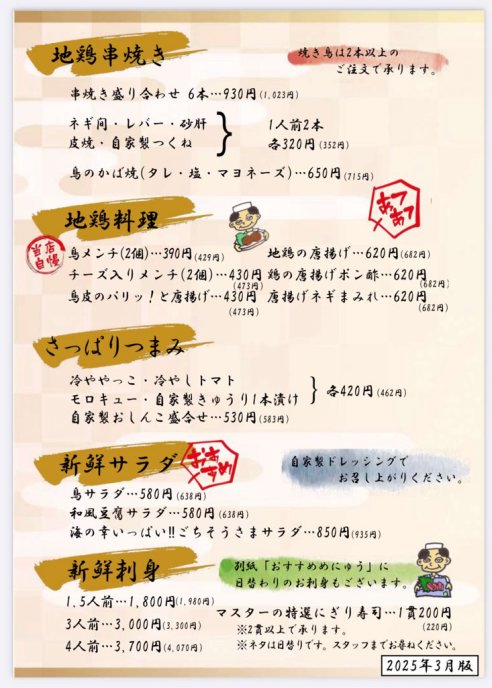 地鶏串焼き
焼き鳥は2本以上の
ご注文で承ります。
串焼き盛り合わせ 6本…930円(1,023円)
ネギ間・レバー・砂肝
皮焼・自家製つくね
1人前2本
各320円(352円)
鳥のかば焼(タレ・塩・マヨネーズ)…650円(715円)
地鶏料理
あつあつ
当店自慢
鳥メンチ(2個)…390円(429円)
地鶏の唐揚げ…620円(682円)
チーズ入りメンチ(2個)…430円(473円)
鶏の唐揚げポン酢…620円(682円)
鳥皮のパリッ!と唐揚げ…430円(473円)
唐揚げネギまみれ…620円(682円)
さっぱりつまみ
冷ややっこ・冷やしトマト
モロキュー・自家製きゅうり1本漬け
各420円(462円)
自家製おしんこ盛合せ…530円(583円)
新鮮サラダ
おすすめ
自家製ドレッシングで
お召し上がりください。
鳥サラダ…580円(638円)
和風豆腐サラダ…580円(638円)
海の幸いっぱい!!ごちそうさまサラダ…850円(935円)
新鮮刺身
別紙「おすすめめにゅう」に
日替わりのお刺身もございます。
1.5人前…1,800円(1,980円)
3人前…3,000円(3,300円)
4人前…3,700円(4,070円)
マスターの特選にぎり寿司…1貫200円
(220円)
※2貫以上で承ります。
※ネタは日替りです。スタッフまでお尋ねください。
2025年3月版